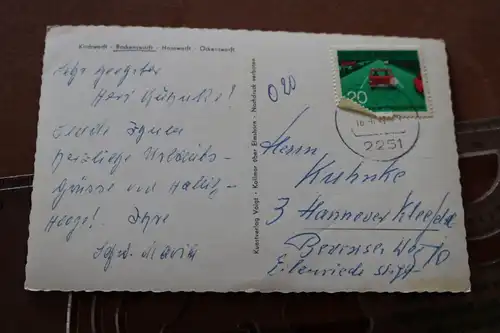 Kirchwarft - Backenswarft - Hanswarft - Ockenswarft
Sehr geehrter
Herr Kuhnke!
Sende Ihnen
herzliche Urlaubs-
Grüsse von Hallig-
Hooge! Ihre
Maria
Kunstverlag Voigt - Kollmar über Elmshorn - Nachdruck verboten
020
20
2251
Herrn
Kuhnke
3 Hannover Kleefeld
10